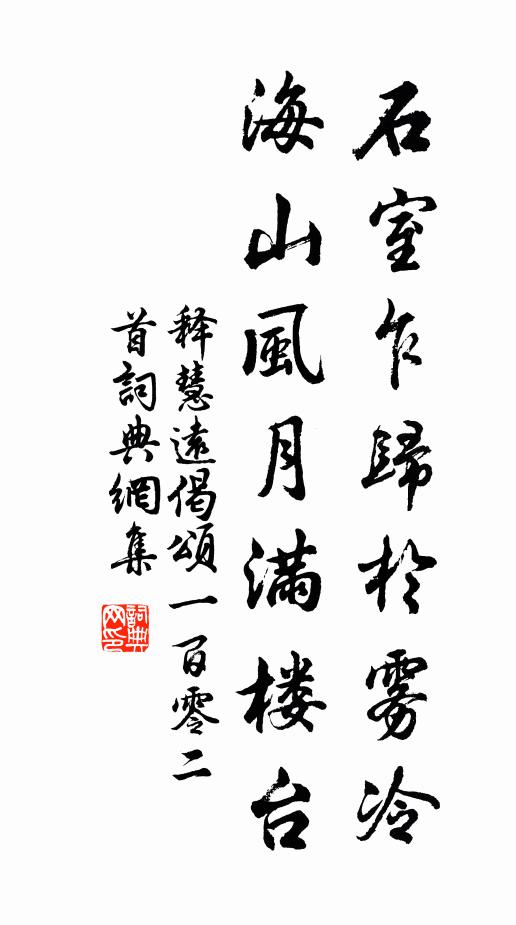 石室乍歸於雾冷
海山風月满楼台
释慧遠偈頌一百零二
首詞典網集
詞典
网印